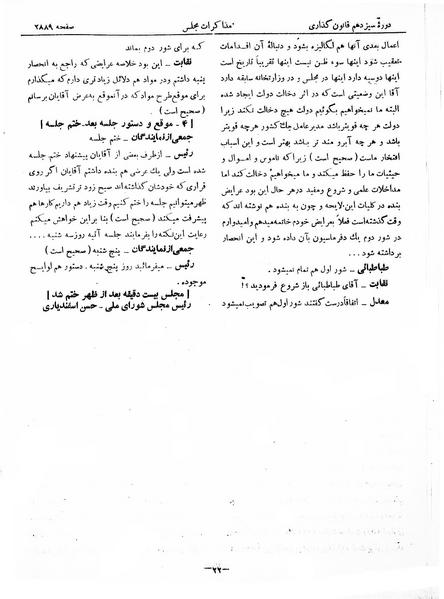 دورهٔ سیزدهم قانون گذاری
مذاکرات مجلس
صفحه ۲۸۸۹
اعمال بعدی آنها هم انگالیزه بشود و دنبالهٔ آن اقدامات
تعقیب شود اینها سوء ظن نیست اینها تقریباً تاریخ است
اینها دوسیه دارد اینها در مجلس و در وزارتخانه سابقه دارد
آقا این وضعیتی است که در اثر دخالت دولت ایجاد شده
البته ما نمیخواهیم بگوئیم دولت هیچ دخالت نکند زیرا
دولت هر چه قویتر باشد مدیر عامل جاتٔ کشور هرچه قویتر
باشد و هر چه آبرو مند تر باشد بهتر است و این اسباب
افتخار ماست (صحیح است) زیرا که ناموس و اموال و
حیثیات ما را حفظ میکند و ما میخواهیم دخالت کند اما
مداخلات علمی و شروع و مفید در هر حال این بود عرایض
بنده در کلیات این لایحه و چون به بنده هم نوشته اند که
وقت گذشته است فعلا بعرایض خودم خاتمه میدهم و امیدوارم
در شور دوم یک دفرماسیون بآن داده شود و این انحصار
برداشته شود ...
طباطبائی ـ شور اول هم تمام نمیشود .
نقابت ـ آقای طباطبائی باز شروع فرمودید؟!
معدل ـ اتفاقاً درست گفتند شور اول هم تصویب نمیشود
که برای شور دوم بماند
نقابت ـ این بود خلاصه عرایضی که راجع به انحصار
پنبه داشتم و در مواد هم دلائل زیادتری دارم که میگذارم
برای موقع طرح مواد که در آنموقع بعرض آقایان برسانم
(صحیح است)
[ ۴ ـ موقع و دستور جلسه بعد ـ ختم جلسه ]
جمعی از نمایندگان ـ ختم جلسه
رئیس ـ از طرف بعض از آقایان پیشنهاد ختم جلسه
شده است ولی یک عرضی هم بنده داشتم آقایان اگر روی
قراری که خودشان گذاشته‌اند صبح زود تر تشریف بیاورند
ظهر میتوانیم جلسه را ختم کنیم وقت زیاد هم داریم کارها هم
پیشرفت میکند (صحیح است) بنا بر این خواهش میکنم
رعایت این نکته را بفرمایند جلسه آتیه روز سه شنبه ....
جمعی از نمایندگان ـ پنج شنبه (صحیح است)
رئیس ـ میفرمائید روز پنجشنبه . دستور هم لوایح
موجوده .
[ مجلس بیست دقیقه بعد از ظهر ختم شد ]
رئیس مجلس شورای ملی ـ حسن اسفندیاری
ـ۲۲ـ